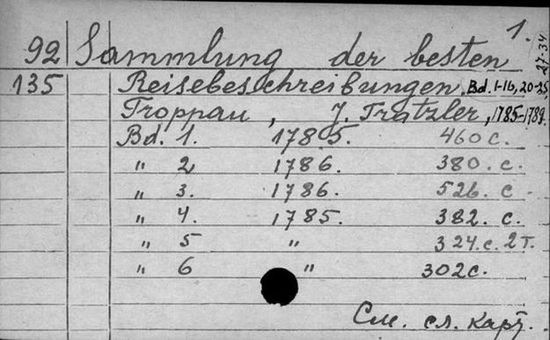 1.
92 Sammlung der besten
135 Reisebeschreibungen. Bd. 1-16, 20-25
27-34
Troppau, J. Tratzler, 1785-1789.
Bd. 1. 1785. 460 c.
" 2 1786. 380. c.
" 3. 1786. 526. c
" 4. 1785. 382. c.
" 5 " 324. c. 2 T.
" 6 " 302 c.
См. сл. карт.